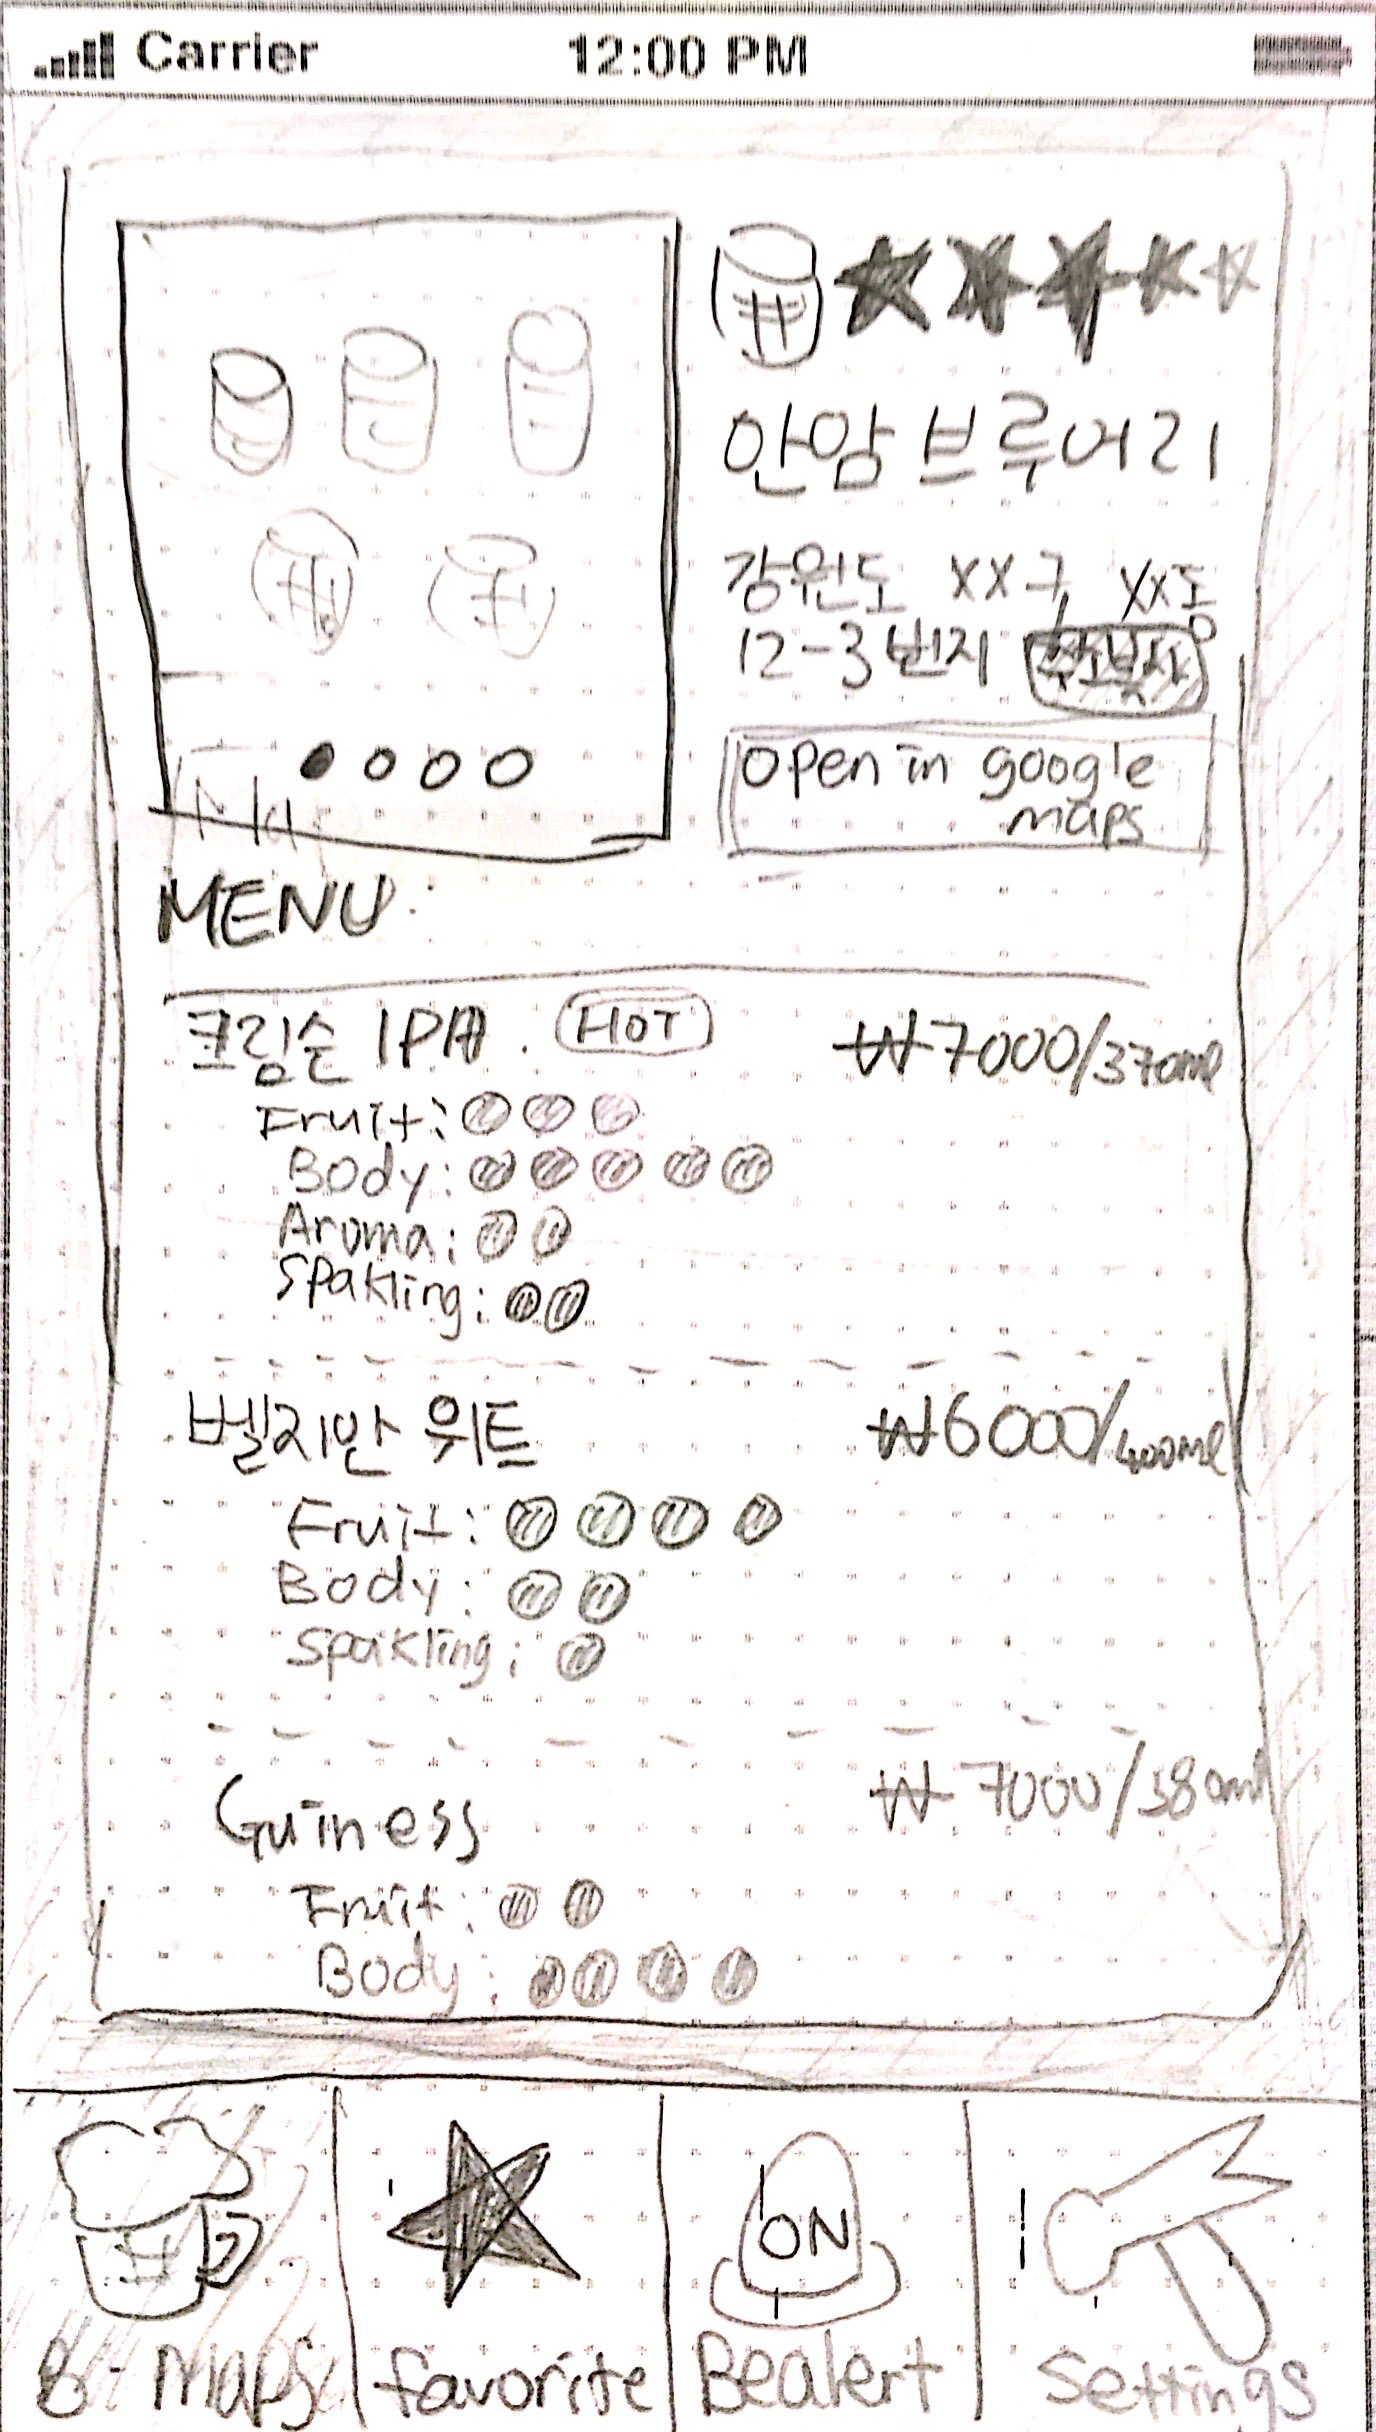 Carrier 12:00 PM
안암 브루어리
강원도 XX구, XX동
12-3번지 주소복사
open in google
maps
MENU
크림슨 IPA. HOT ₩7000/370ml
Fruit:
Body:
Aroma:
Spakling:
벨지안 위트 ₩6000/400ml
Fruit:
Body:
Spakling:
Guiness ₩7000/380ml
Fruit:
Body:
ON
B-Maps favorite Bealert Settings